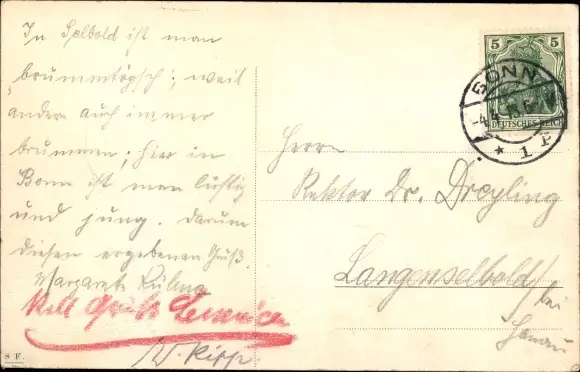 In Selbold ist man
"brummtöpsch"; weil
andere auch immer
brummen; hier in
Bonn ist man lustig
und jung. Darum
diesen ergebenen Gruß.
Margarete
W. Kipp
S F.
5 5
DEUTSCHES REICH
BONN
* 1 F
Herrn
Rektor Dr. Dreyling
Langenselbold
bei
Hanau